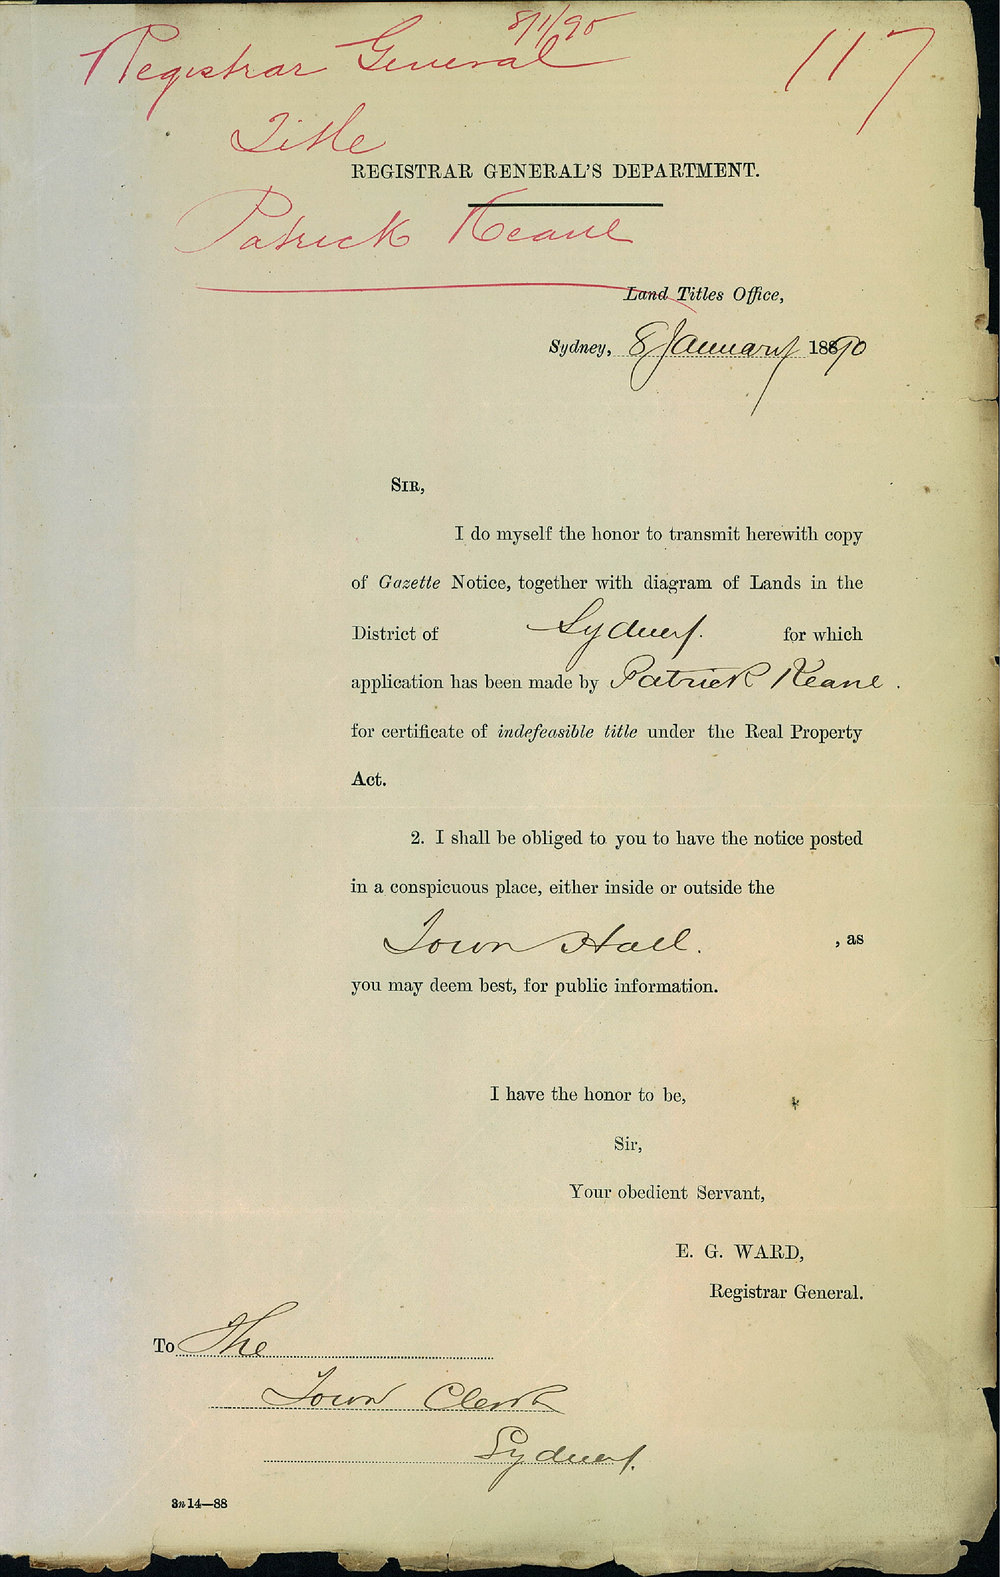 8/1/90
Registrar General
117
Title
REGISTRAR GENERAL'S DEPARTMENT.
Patrick Keane
Land Titles Office,
Sydney, 8 January 18890
SIR,
I do myself the honor to transmit herewith copy
of Gazette Notice, together with diagram of Lands in the
District of Sydney. for which
application has been made by Patrick Keane.
for certificate of indefeasible title under the Real Property
Act.
2. I shall be obliged to you to have the notice posted
in a conspicuous place, either inside or outside the
Town Hall. , as
you may deem best, for public information.
I have the honor to be,
Sir,
Your obedient Servant,
E. G. WARD,
Registrar General.
To The
Town Clerk
Sydney.
3n 14—88